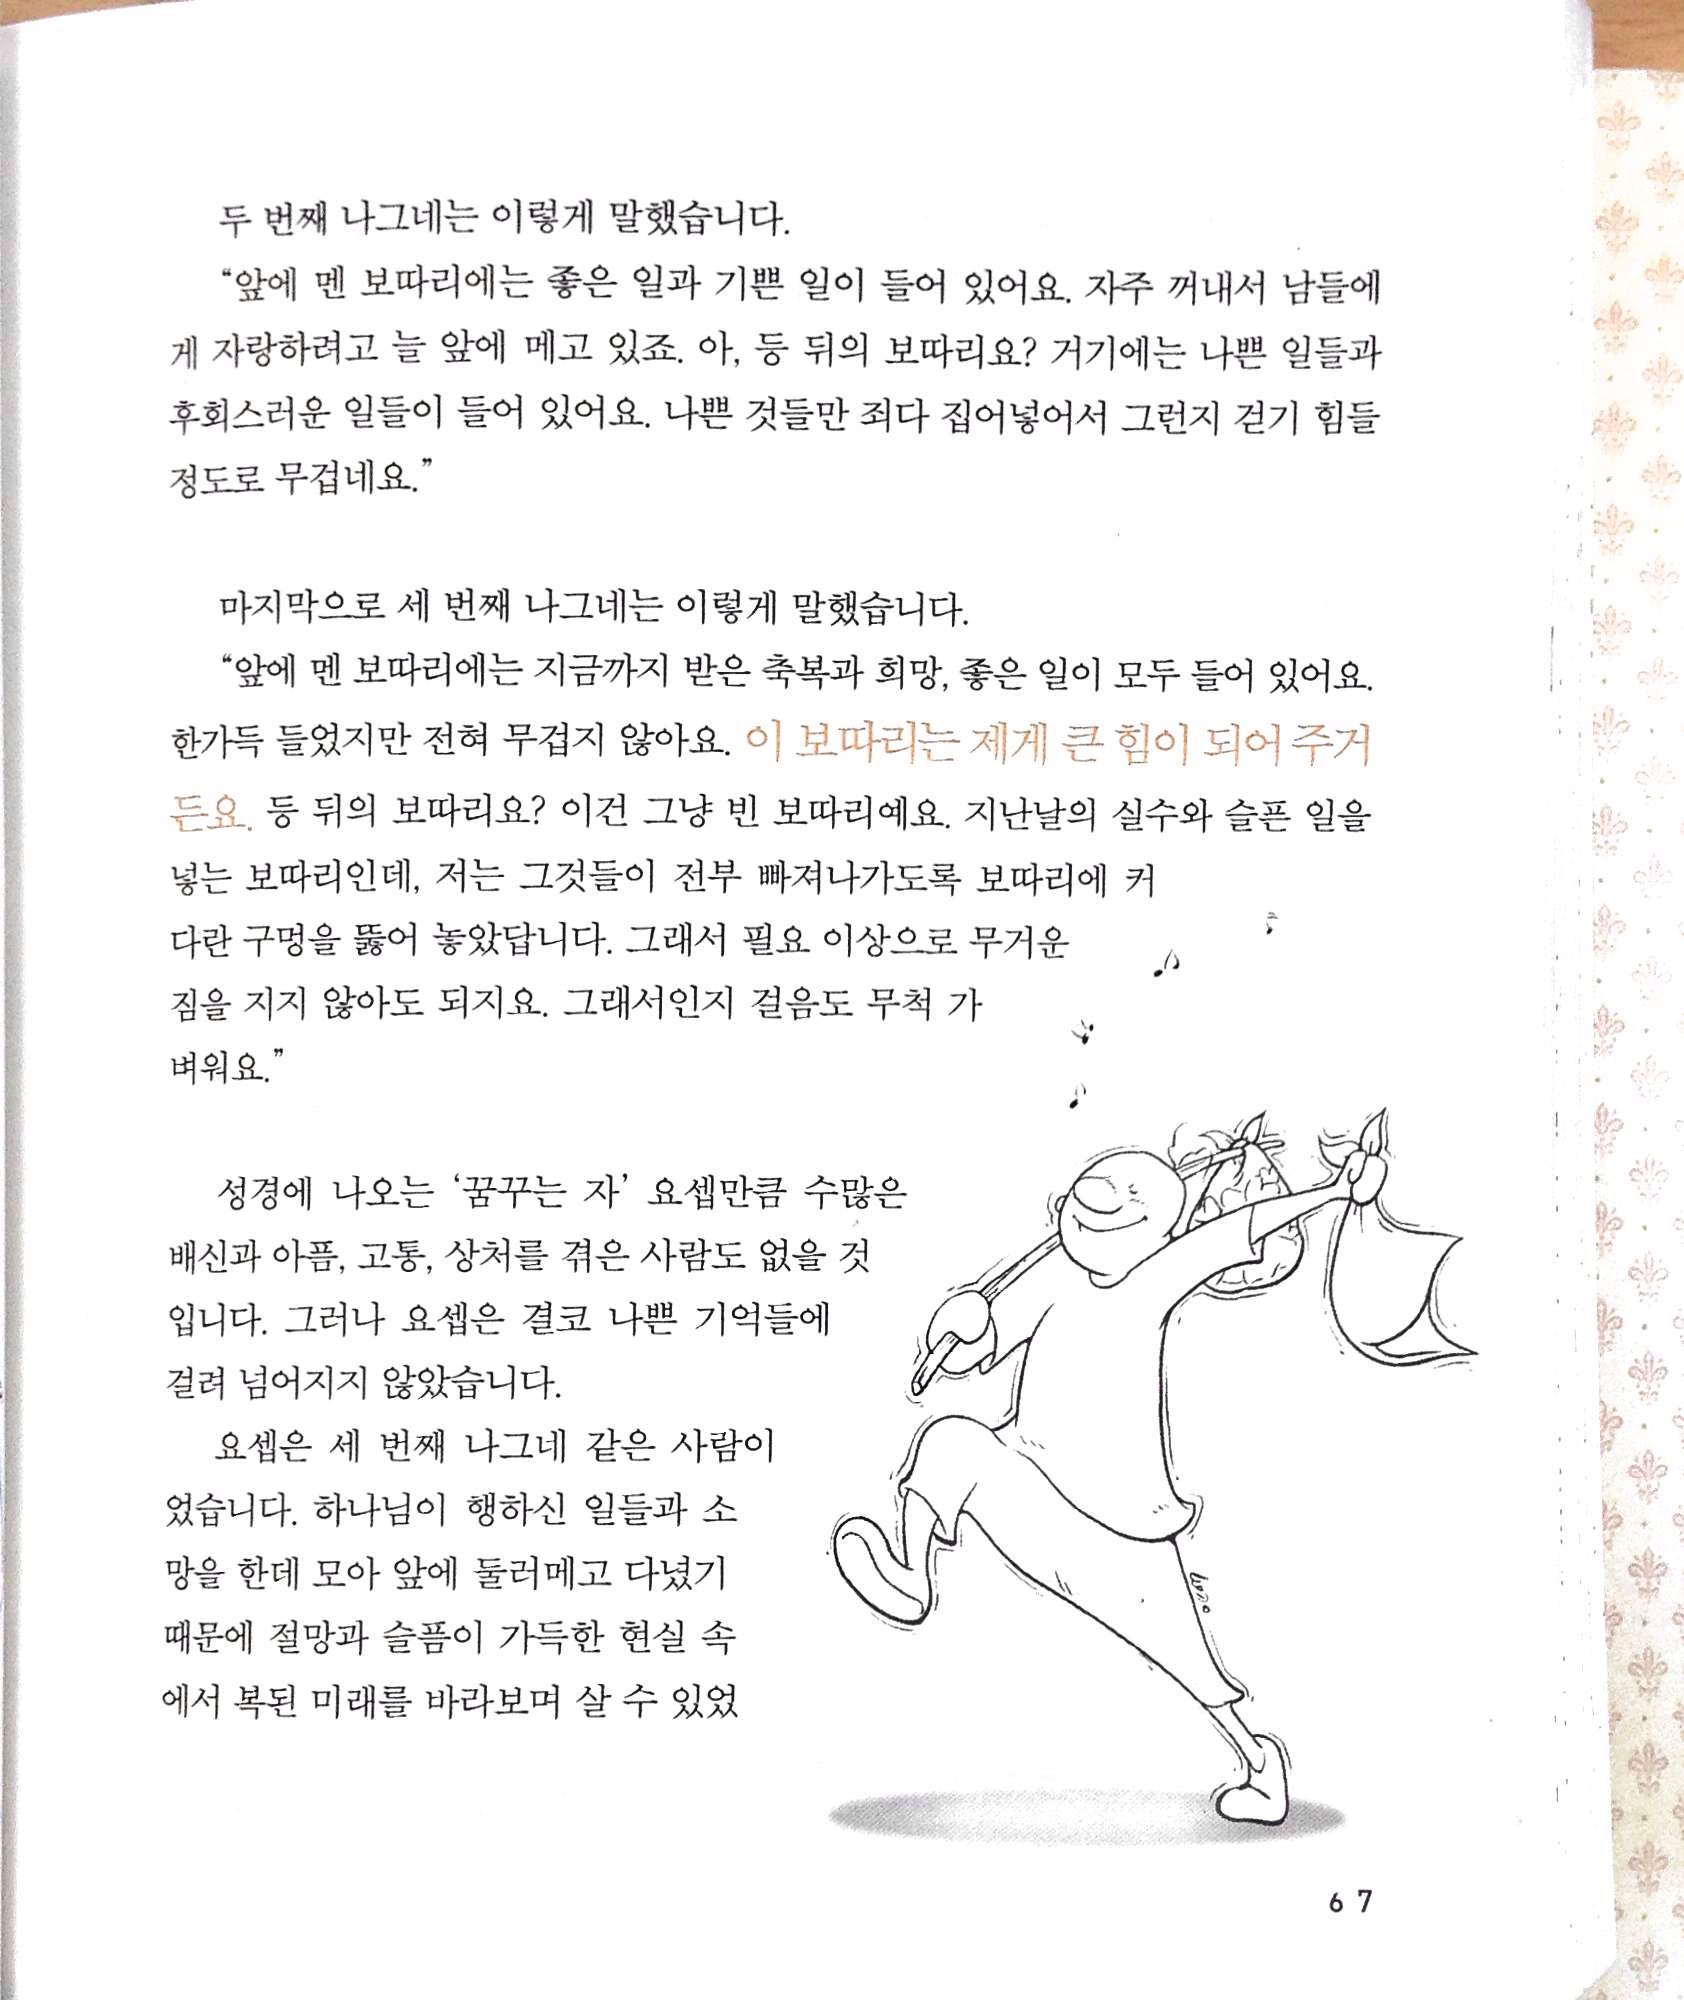 두 번째 나그네는 이렇게 말했습니다.
“앞에 멘 보따리에는 좋은 일과 기쁜 일이 들어 있어요. 자주 꺼내서 남들에
게 자랑하려고 늘 앞에 메고 있죠. 아, 등 뒤의 보따리요? 거기에는 나쁜 일들과
후회스러운 일들이 들어 있어요. 나쁜 것들만 죄다 집어넣어서 그런지 걷기 힘들
정도로 무겁네요.”
마지막으로 세 번째 나그네는 이렇게 말했습니다.
“앞에 멘 보따리에는 지금까지 받은 축복과 희망, 좋은 일이 모두 들어 있어요.
한가득 들었지만 전혀 무겁지 않아요. 이 보따리는 제게 큰 힘이 되어 주거
든요. 등 뒤의 보따리요? 이건 그냥 빈 보따리예요. 지난날의 실수와 슬픈 일을
넣는 보따리인데, 저는 그것들이 전부 빠져나가도록 보따리에 커
다란 구멍을 뚫어 놓았답니다. 그래서 필요 이상으로 무거운
짐을 지지 않아도 되지요. 그래서인지 걸음도 무척 가
벼워요.”
성경에 나오는 ‘꿈꾸는 자’ 요셉만큼 수많은
배신과 아픔, 고통, 상처를 겪은 사람도 없을 것
입니다. 그러나 요셉은 결코 나쁜 기억들에
걸려 넘어지지 않았습니다.
요셉은 세 번째 나그네 같은 사람이
었습니다. 하나님이 행하신 일들과 소
망을 한데 모아 앞에 둘러메고 다녔기
때문에 절망과 슬픔이 가득한 현실 속
에서 복된 미래를 바라보며 살 수 있었
67